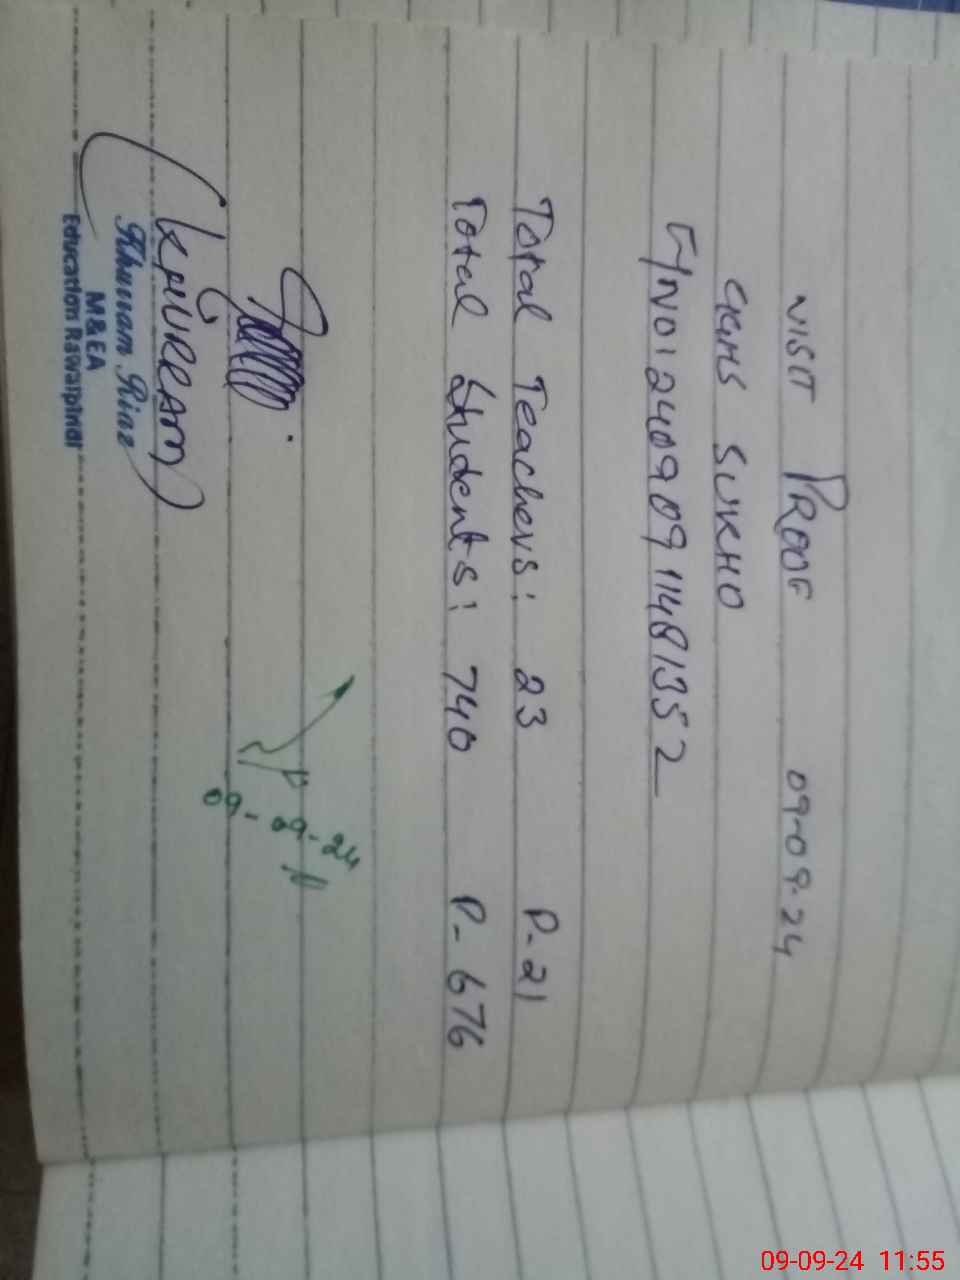 VISIT PROOF 09-09-24
GGHS SUKHO
24090911481352
Total Teachers: 23 P-21
Total Students: 740 P-676
09-09-24
(KHURRAM)
Khurram Riaz
M&EA
Education Rawalpindi
09-09-24 11:55